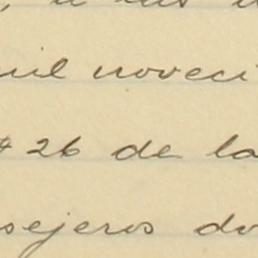 , a las
mil noveci
# 26 de la
sejeros do